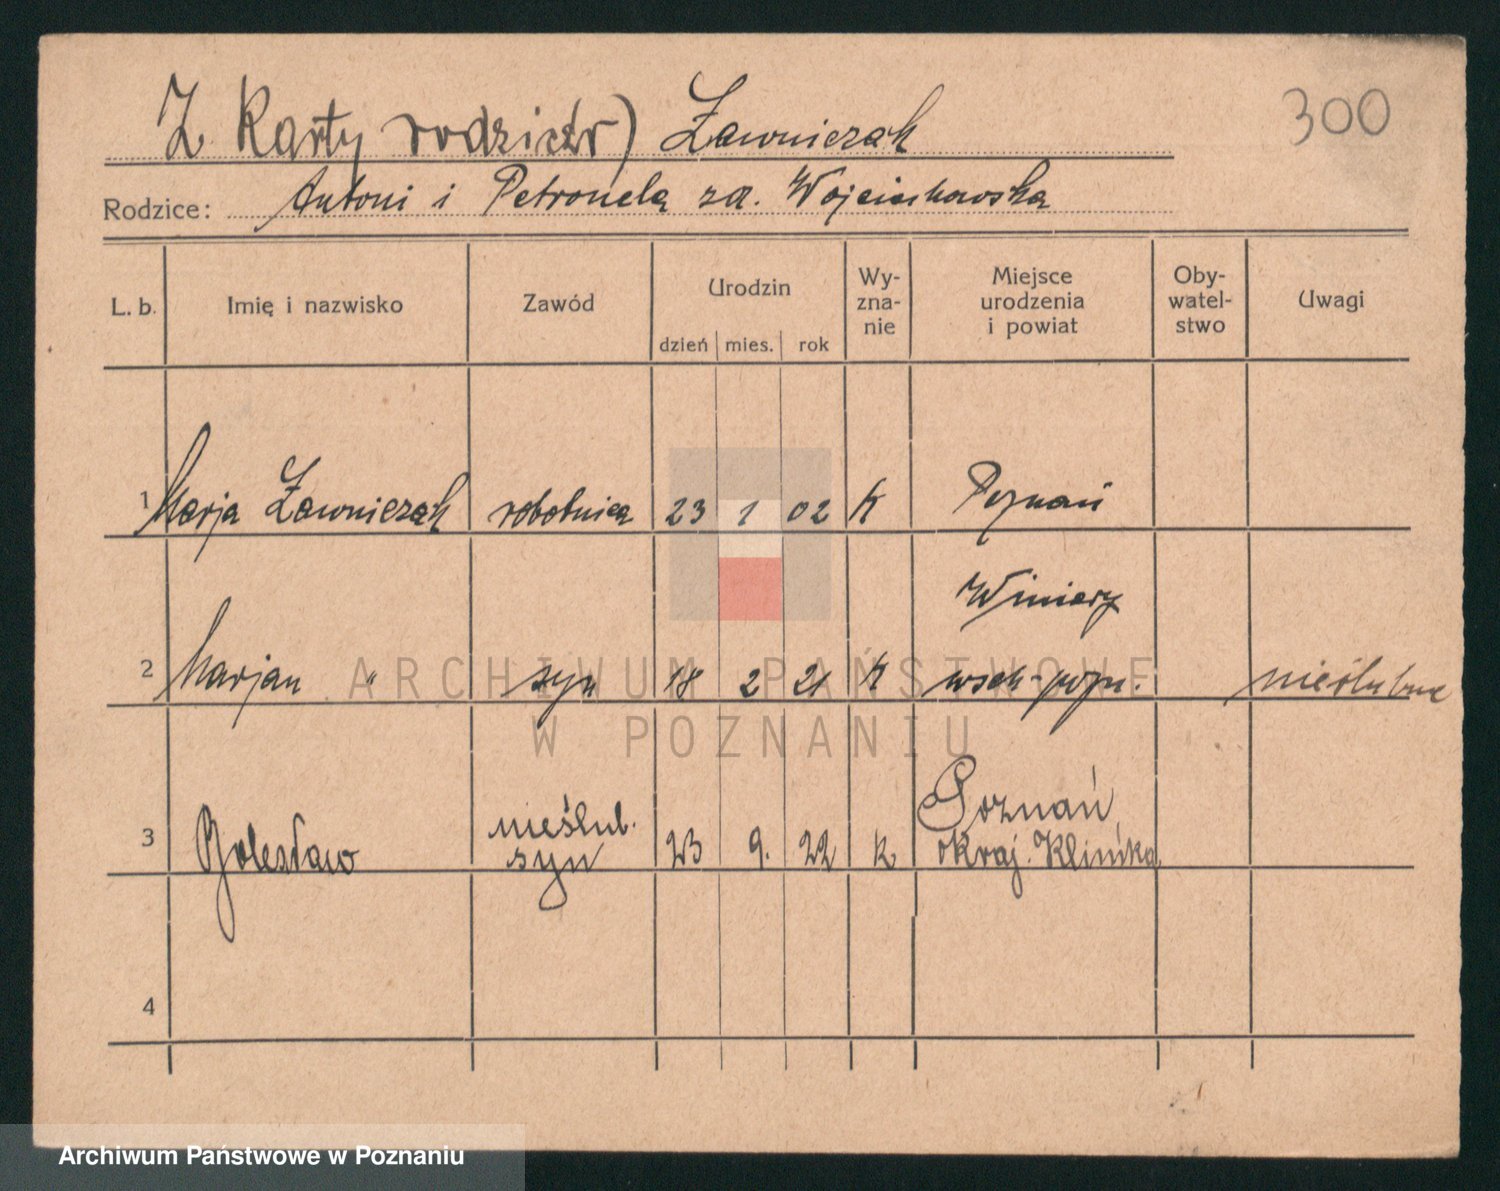 Z Karty rodziców) Ławniczak
300
Rodzice: Antoni i Petronela za. Wojciechowska
L. b. Imię i nazwisko Zawód Urodzin dzień mies. rok Wy-zna-nie Miejsce urodzenia i powiat Oby-watel-stwo Uwagi
1 Marja Ławniczak robotnica 23 1 02 K Poznań
Winiary
2 Marjan " syn 18 2 21 K wsch-pozn. nieślubne
3 Bolesław nieślub. syn 23 9. 22 K Poznań okraj. Klinika
4
ARCHIWUM PAŃSTWOWE
W POZNANIU
Archiwum Państwowe w Poznaniu